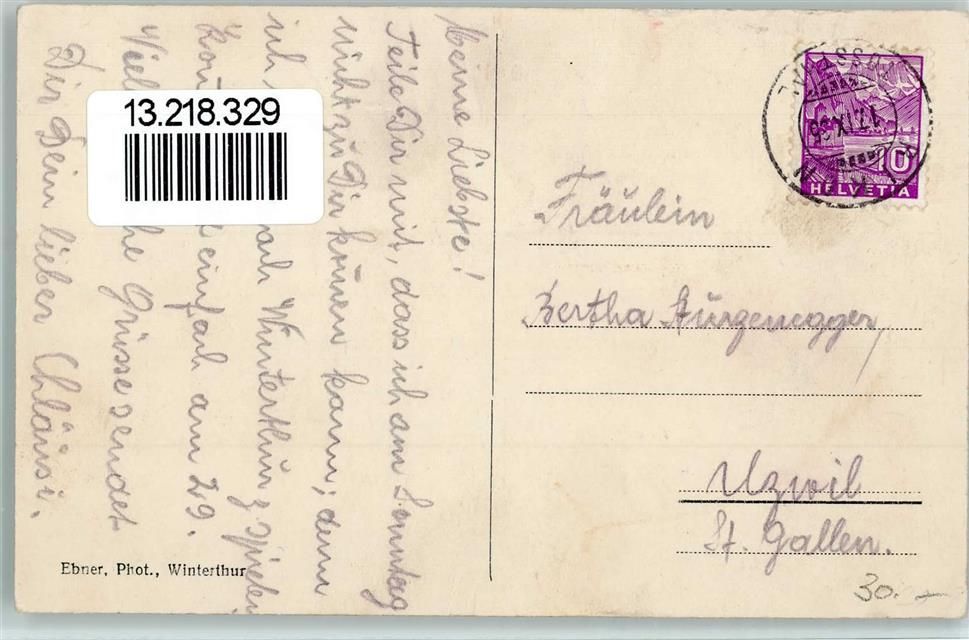 Meine Liebste!
Teile Dir mit, dass ich am Sonntag
nicht zu Dir kommen kann; denn
ich nach Winterthur z. spielen
einfach am 29.
he Grüsse sendet
Dir Dein lieber Chläusi.
13.218.329
Ebner, Phot., Winterthur
10
HELVETIA
Fräulein
Bertha Hürzenegger,
Uzwil
St. Gallen.
30.-